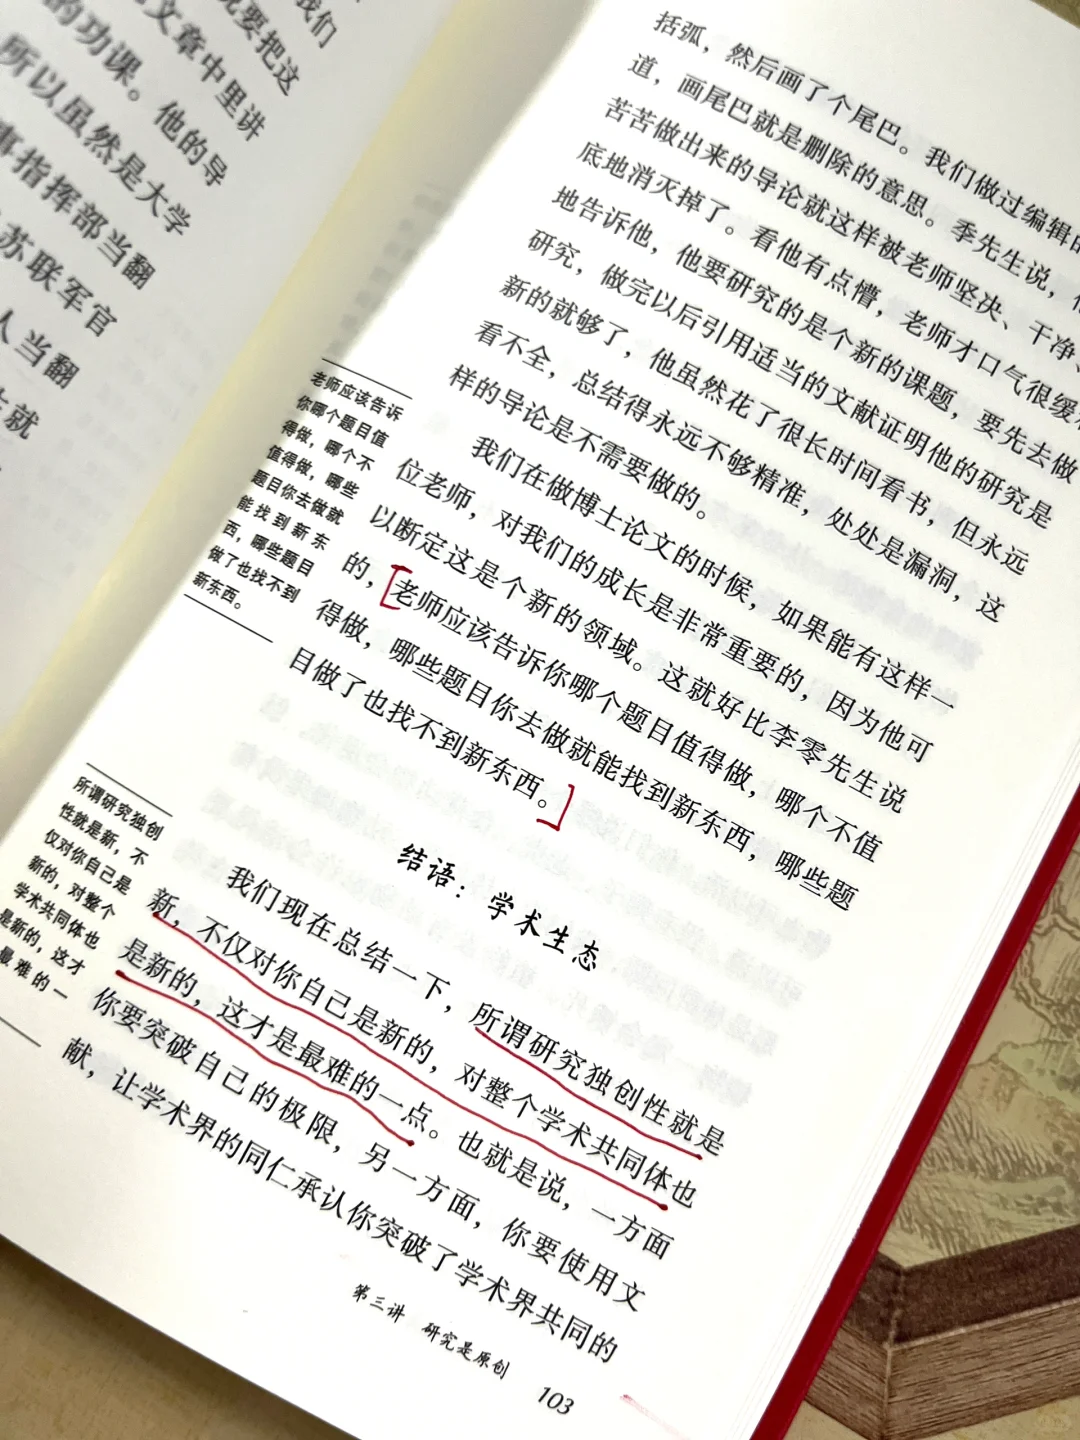 我们
就要把这
文章中里讲
的功课。他的导
所以虽然是大学
事指挥部当翻
苏联军官
人当翻
就
括弧，然后画了个尾巴。我们做过编辑的
道，画尾巴就是删除的意思。季先生说，
苦苦做出来的导论就这样被老师坚决、干净、
底地消灭掉了。看他有点懵，老师才口气很缓
地告诉他，他要研究的是个新的课题，要先去做
研究，做完以后引用适当的文献证明他的研究是
新的就够了，他虽然花了很长时间看书，但永远
看不全，总结得永远不够精准，处处是漏洞，这
样的导论是不需要做的。
我们在做博士论文的时候，如果能有这样一
位老师，对我们的成长是非常重要的，因为他可
以断定这是个新的领域。这就好比李零先生说
的，老师应该告诉你哪个题目值得做，哪个不值
得做，哪些题目你去做就能找到新东西，哪些题
目做了也找不到新东西。
老师应该告诉
你哪个题目值
得做，哪个不
值得做，哪些
题目你去做就
能找到新东
西，哪些题目
做了也找不到
新东西。
结语：学术生态
我们现在总结一下，所谓研究独创性就是
新，不仅对你自己是新的，对整个学术共同体也
是新的，这才是最难的一点。也就是说，一方面
你要突破自己的极限，另一方面，你要使用文
献，让学术界的同仁承认你突破了学术界共同的
所谓研究独创
性就是新，不
仅对你自己是
新的，对整个
学术共同体也
是新的，这才
最难的一
第三讲 研究是原创
103